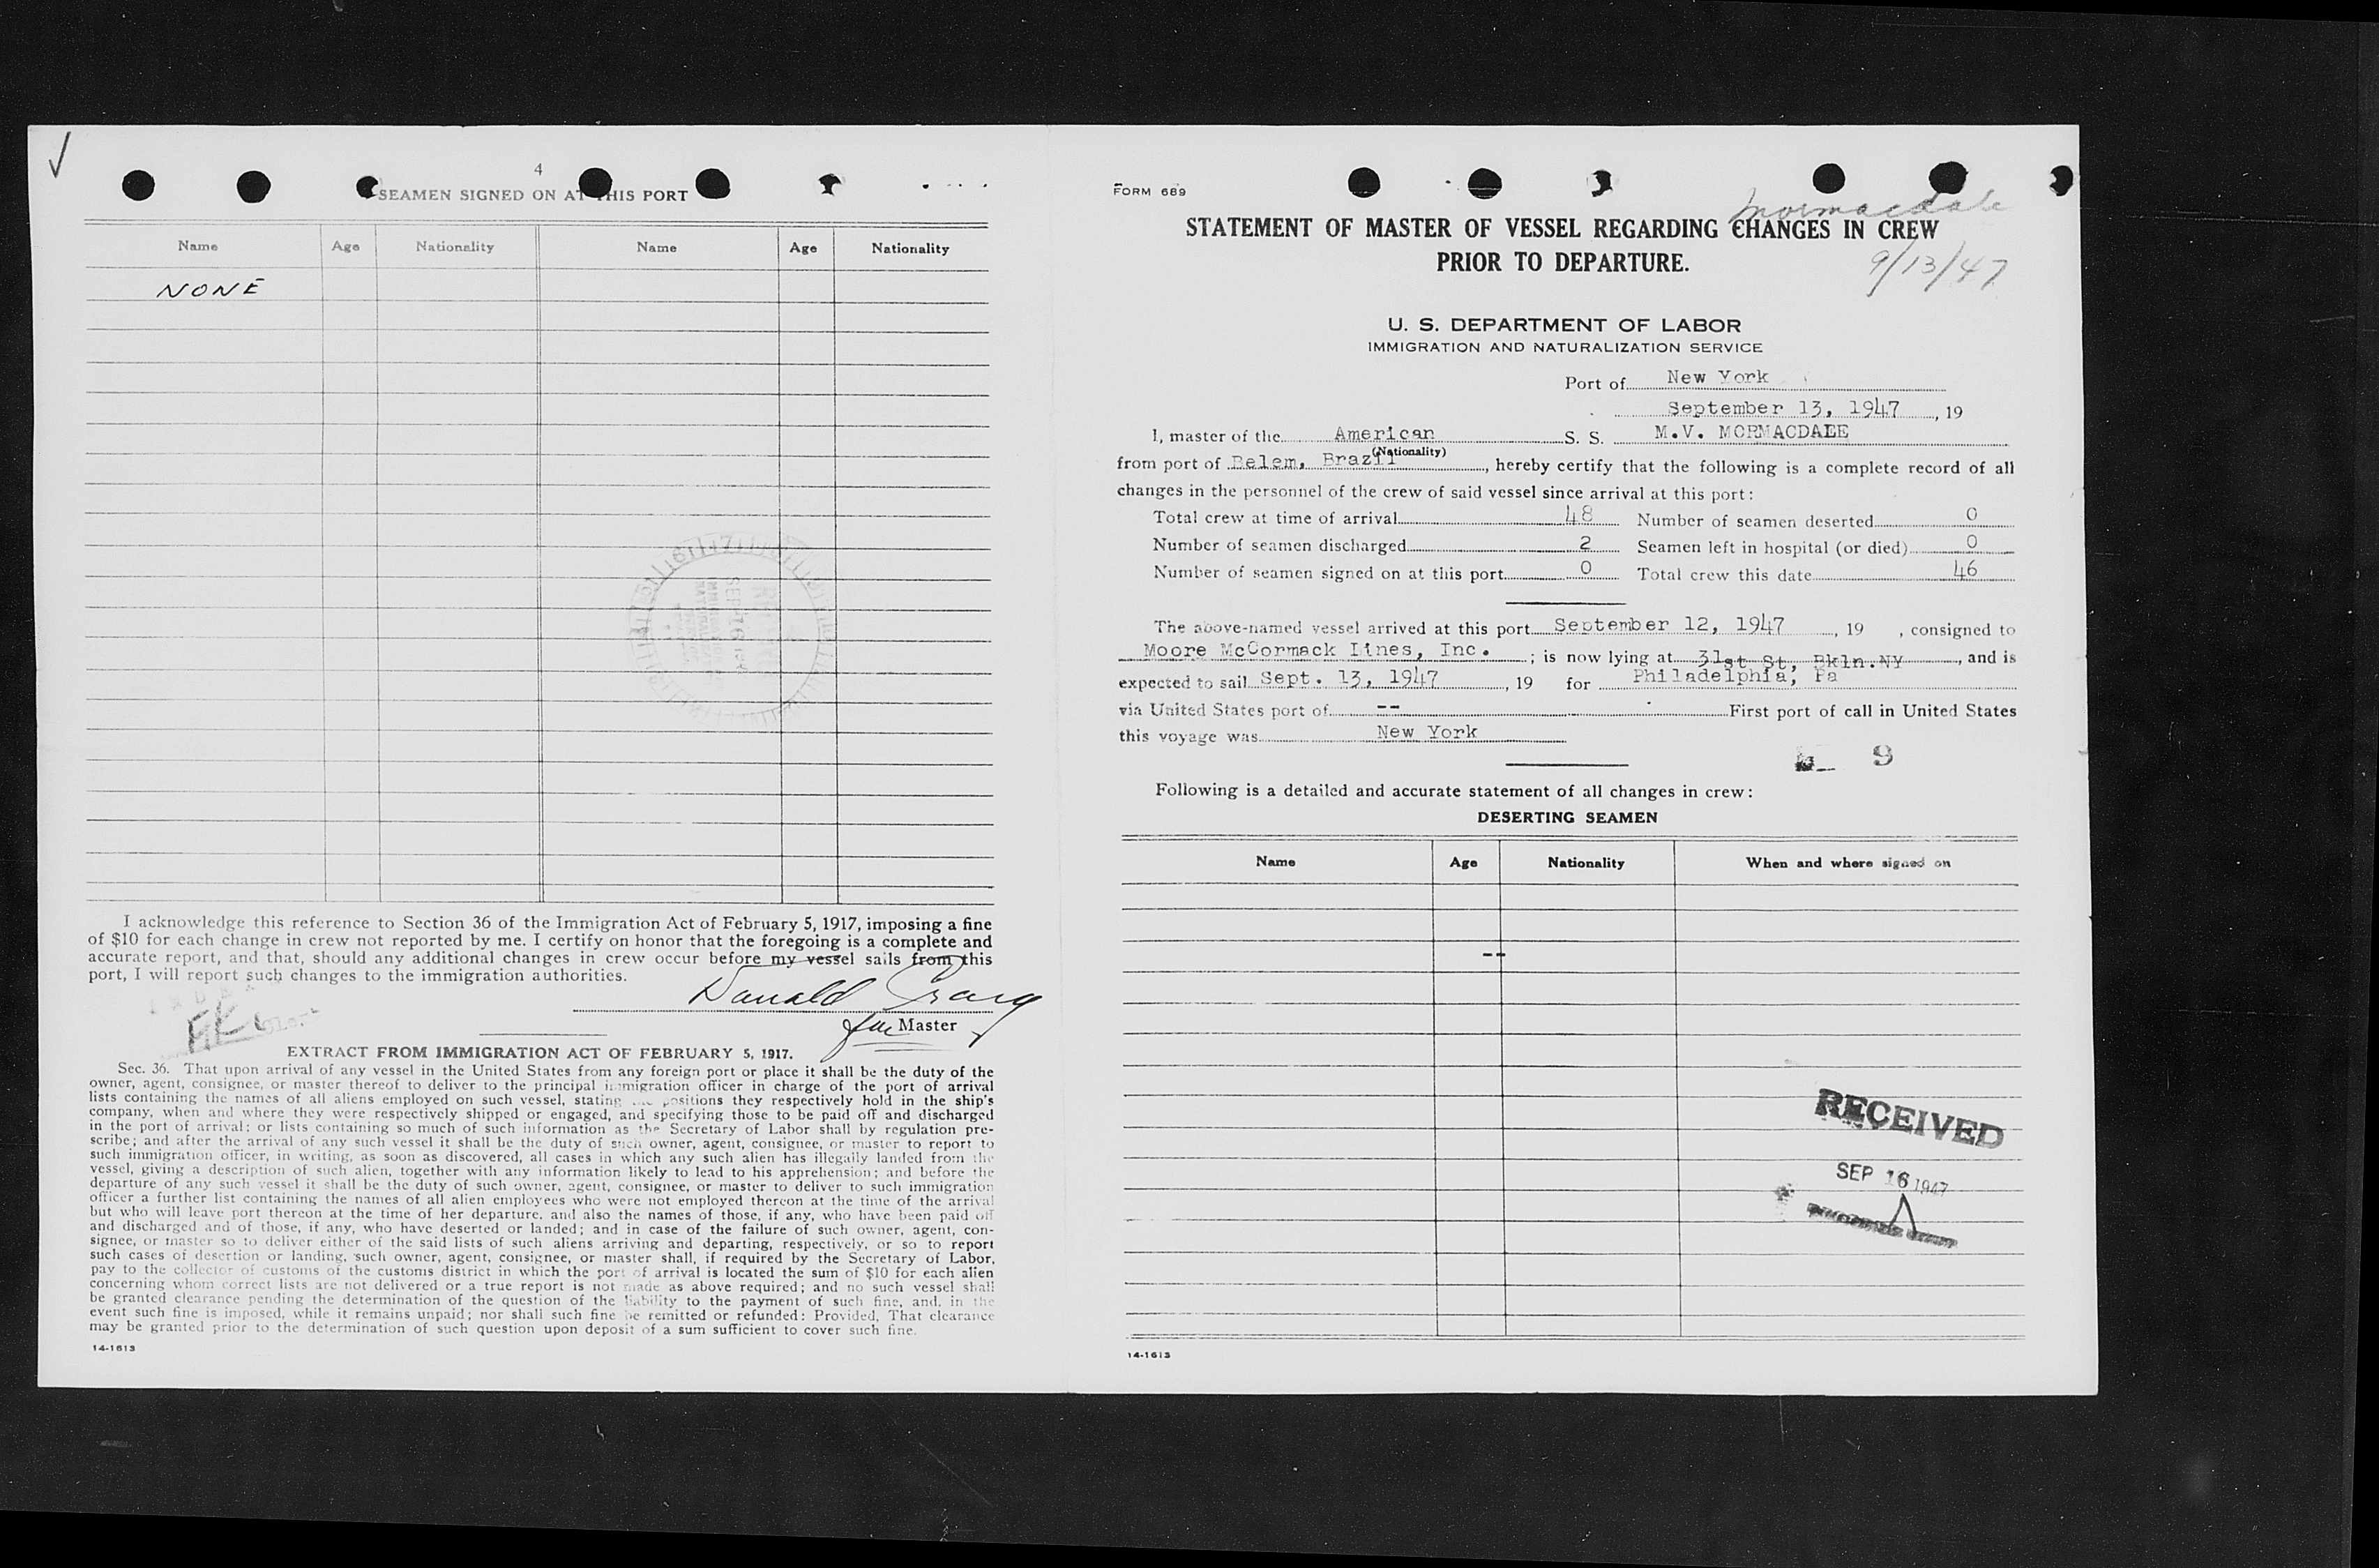 4
SEAMEN SIGNED ON AT THIS PORT
Name Age Nationality Name Age Nationality
NONE
I acknowledge this reference to Section 36 of the Immigration Act of February 5, 1917, imposing a fine
of $10 for each change in crew not reported by me. I certify on honor that the foregoing is a complete and
accurate report, and that, should any additional changes in crew occur before my vessel sails from this
port, I will report such changes to the immigration authorities.
Donald Craig
for Master
EXTRACT FROM IMMIGRATION ACT OF FEBRUARY 5, 1917.
Sec. 36. That upon arrival of any vessel in the United States from any foreign port or place it shall be the duty of the
owner, agent, consignee, or master thereof to deliver to the principal immigration officer in charge of the port of arrival
lists containing the names of all aliens employed on such vessel, stating the positions they respectively hold in the ship's
company, when and where they were respectively shipped or engaged, and specifying those to be paid off and discharged
in the port of arrival; or lists containing so much of such information as the Secretary of Labor shall by regulation pre-
scribe; and after the arrival of any such vessel it shall be the duty of such owner, agent, consignee, or master to report to
such immigration officer, in writing, as soon as discovered, all cases in which any such alien has illegally landed from the
vessel, giving a description of such alien, together with any information likely to lead to his apprehension; and before the
departure of any such vessel it shall be the duty of such owner, agent, consignee, or master to deliver to such immigration
officer a further list containing the names of all alien employees who were not employed thereon at the time of the arrival
but who will leave port thereon at the time of her departure, and also the names of those, if any, who have been paid off
and discharged and of those, if any, who have deserted or landed; and in case of the failure of such owner, agent, con-
signee, or master so to deliver either of the said lists of such aliens arriving and departing, respectively, or so to report
such cases of desertion or landing, such owner, agent, consignee, or master shall, if required by the Secretary of Labor,
pay to the collector of customs of the customs district in which the port of arrival is located the sum of $10 for each alien
concerning whom correct lists are not delivered or a true report is not made as above required; and no such vessel shall
be granted clearance pending the determination of the question of the liability to the payment of such fine, and, in the
event such fine is imposed, while it remains unpaid; nor shall such fine be remitted or refunded: Provided, That clearance
may be granted prior to the determination of such question upon deposit of a sum sufficient to cover such fine.
14-1613
FORM 689
Mormacdale
STATEMENT OF MASTER OF VESSEL REGARDING CHANGES IN CREW
PRIOR TO DEPARTURE.
9/13/47
U. S. DEPARTMENT OF LABOR
IMMIGRATION AND NATURALIZATION SERVICE
Port of New York
September 13, 1947, 19
I, master of the American S. S. M.V. MORMACDALE
(Nationality)
from port of Belem, Brazil, hereby certify that the following is a complete record of all
changes in the personnel of the crew of said vessel since arrival at this port:
Total crew at time of arrival 48 Number of seamen deserted 0
Number of seamen discharged 2 Seamen left in hospital (or died) 0
Number of seamen signed on at this port 0 Total crew this date 46
The above-named vessel arrived at this port September 12, 1947, 19 , consigned to
Moore McCormack Lines, Inc. ; is now lying at 31st St, Bkln.NY, and is
expected to sail Sept. 13, 1947, 19 for Philadelphia, Pa
via United States port of -- First port of call in United States
this voyage was New York
9
Following is a detailed and accurate statement of all changes in crew:
DESERTING SEAMEN
Name Age Nationality When and where signed on
--
RECEIVED
SEP 16 1947
14-1613